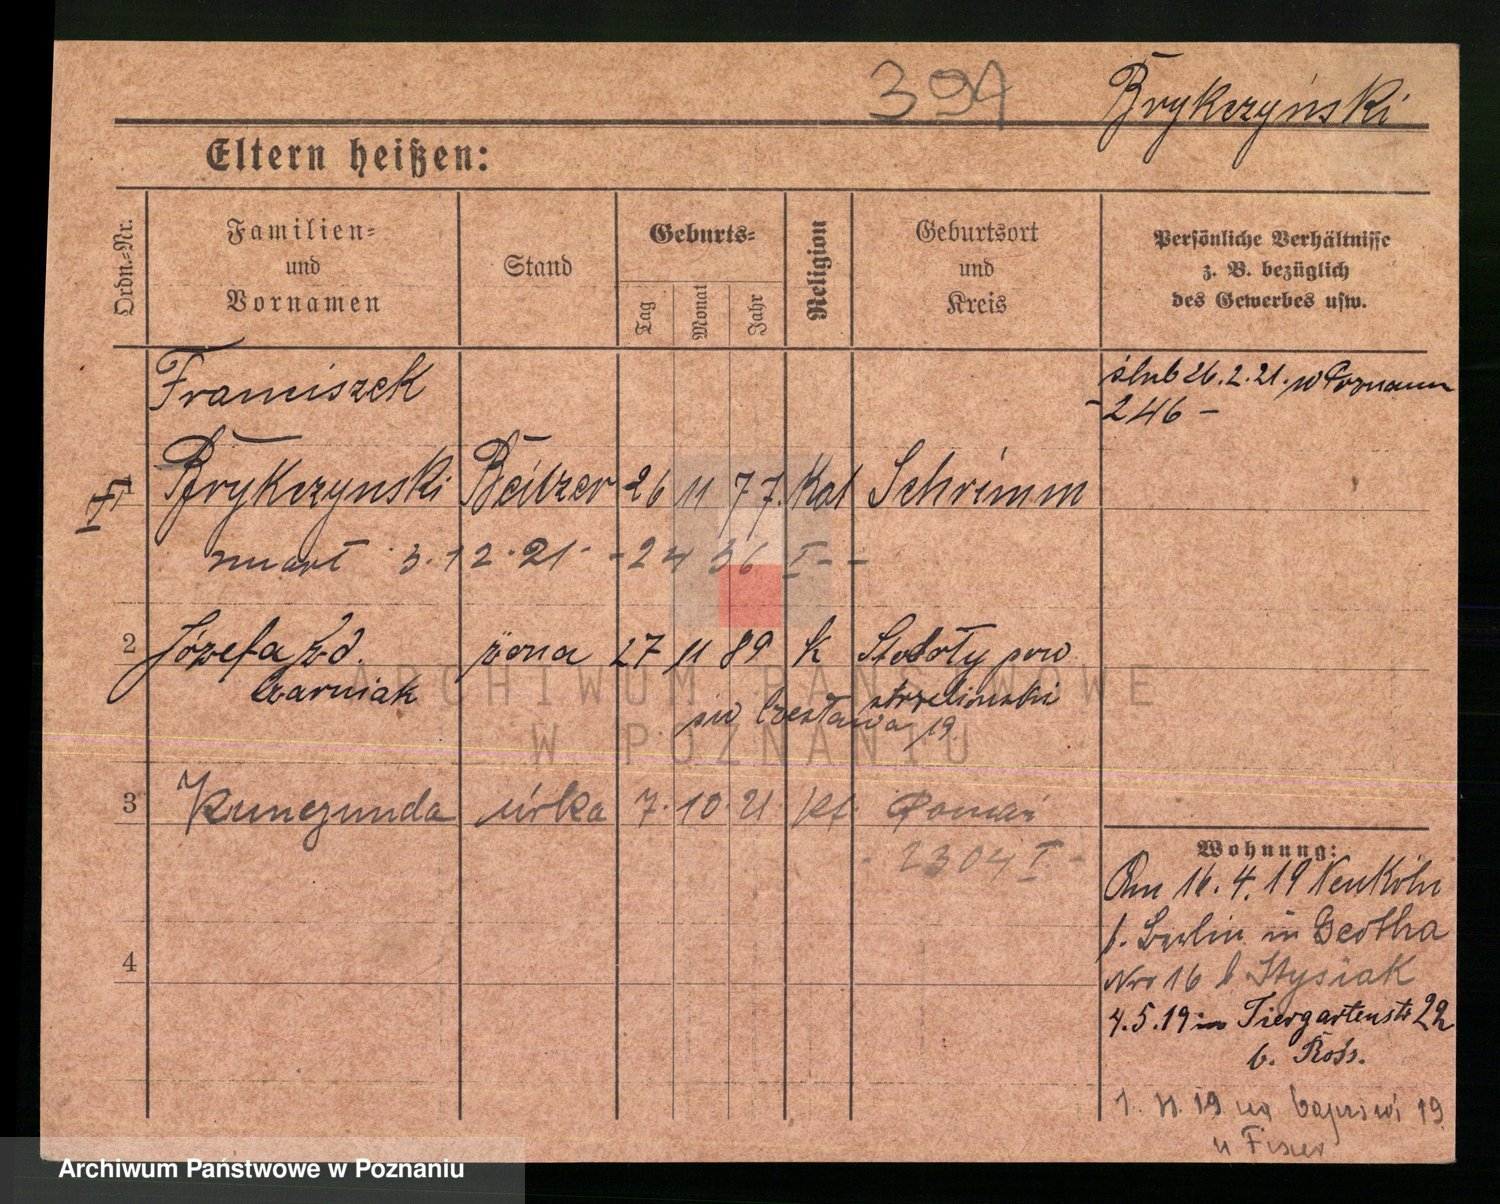 394 Brykczyński
Eltern heißen:
Ordn.-Nr.
Familien-
und
Vornamen
Stand
Geburts-
Tag
Monat
Jahr
Religion
Geburtsort
und
Kreis
Persönliche Verhältnisse
z. B. bezüglich
des Gewerbes usw.
Franciszek
ślub 26.2.21. w Poznaniu
- 246 -
1 Brykczynski Beitzer 26 11 77. Kat Schrimm
zmarł 3.12.21 - 24 36 I - -
2 Józefa żona 27 11 89 k Stoboły pow
strzeliński
19.
3 Kunegunda córka 7. 10. 21 kt. Poznań
- 2304 I -
4
Wohnung:
Am 16.4.19 Neuköln
b. Berlin in Geotha
Nro 16 b Stysiak
4.5.19 in Tiergartenstr 22
b. Ross.
19
u Fiser
ARCHIWUM PAŃSTWOWE
W POZNANIU
Archiwum Państwowe w Poznaniu